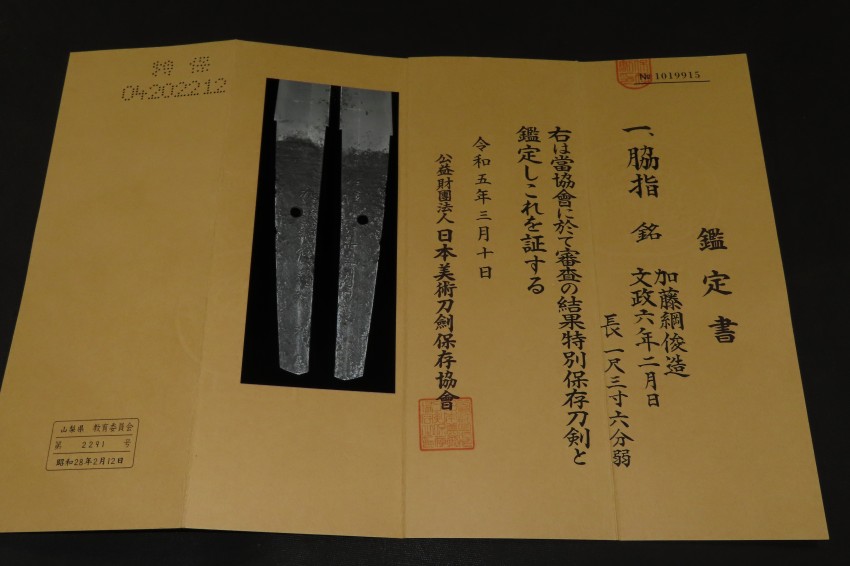 № 1019915
鑑定書
一、脇指 銘 加藤綱俊造
文政六年二月日
長一尺三寸六分弱
右は當協會に於て審査の結果特別保存刀剣と
鑑定しこれを証する
令和五年三月十日
公益財團法人日本美術刀劍保存協會
特 保
04202212
山梨県 教育委員会
第 2291 号
昭和28年2月12日